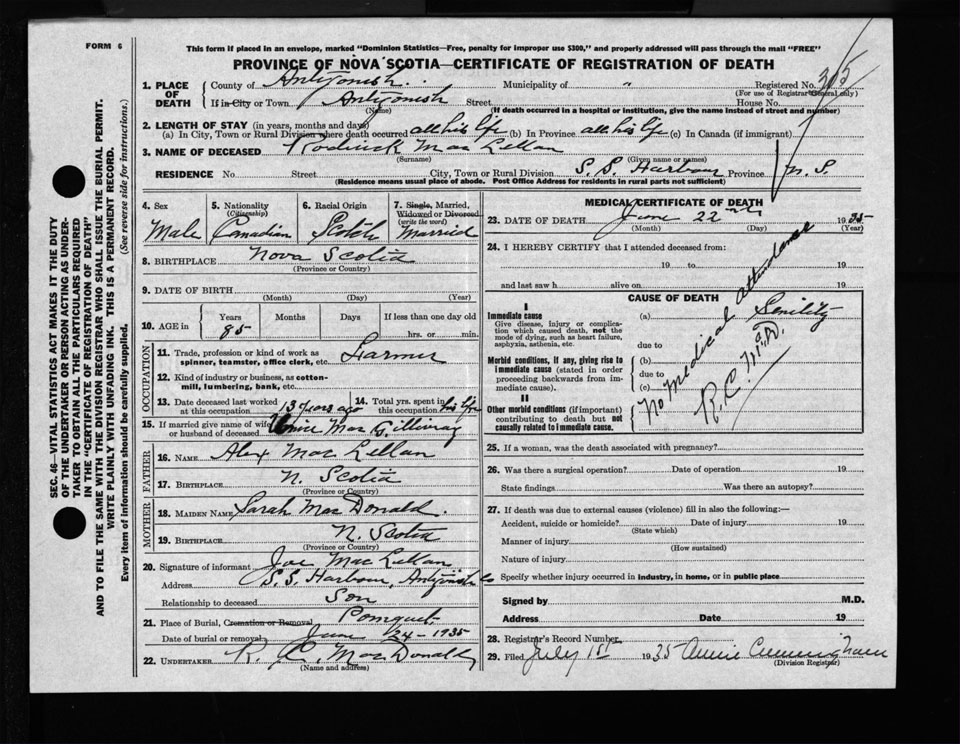 FORM 6
This form if placed in an envelope, marked "Dominion Statistics—Free, penalty for improper use $300," and properly addressed will pass through the mail "FREE"
PROVINCE OF NOVA SCOTIA—CERTIFICATE OF REGISTRATION OF DEATH
SEC. 46—VITAL STATISTICS ACT MAKES IT THE DUTY
OF THE UNDERTAKER OR PERSON ACTING AS UNDER-
TAKER TO OBTAIN ALL THE PARTICULARS REQUIRED
IN THE "CERTIFICATE OF REGISTRATION OF DEATH"
AND TO FILE THE SAME WITH THE DIVISION REGISTRAR WHO SHALL ISSUE THE BURIAL PERMIT.
WRITE PLAINLY WITH UNFADING INK. THIS IS A PERMANENT RECORD.
Every item of information should be carefully supplied. (See reverse side for instructions.)
1. PLACE OF DEATH
County of Antigonish. Municipality of " Registered No. 305
(For use of Registrar General only)
If in City or Town Antigonish Street House No.
(Name) (If death occurred in a hospital or institution, give the name instead of street and number)
2. LENGTH OF STAY (in years, months and days)
(a) In City, Town or Rural Division where death occurred all his life (b) In Province all his life (c) In Canada (if immigrant)
3. NAME OF DECEASED Roderick MacLellan
(Surname) (Given name or names)
RESIDENCE No Street City, Town or Rural Division S. S. Harbour Province N. S.
(Residence means usual place of abode. Post Office Address for residents in rural parts not sufficient)
4. Sex Male
5. Nationality (Citizenship) Canadian
6. Racial Origin Scotch
7. Single, Married, Widowed or Divorced (write the word) Married
8. BIRTHPLACE Nova Scotia
(Province or Country)
9. DATE OF BIRTH
(Month) (Day) (Year)
10. AGE in Years Months Days If less than one day old
85 hrs. or min.
OCCUPATION
11. Trade, profession or kind of work as spinner, teamster, office clerk, etc. Farmer
12. Kind of industry or business, as cotton-mill, lumbering, bank, etc.
13. Date deceased last worked at this occupation 13 years ago
14. Total yrs. spent in this occupation his life
15. If married give name of wife or husband of deceased MacGillivray
FATHER
16. NAME Alex MacLellan
17. BIRTHPLACE N. Scotia
(Province or Country)
MOTHER
18. MAIDEN NAME Sarah MacDonald.
19. BIRTHPLACE N. Scotia
(Province or Country)
20. Signature of informant Joe MacLellan
Address S. S. Harbour, Antigonish Co
Relationship to deceased Son
21. Place of Burial, Cremation or Removal Pomquet
Date of burial or removal June 24-1935
22. UNDERTAKER R. C. MacDonald,
(Name and address)
MEDICAL CERTIFICATE OF DEATH
23. DATE OF DEATH June 22nd 1935
(Month) (Day) (Year)
24. I HEREBY CERTIFY that I attended deceased from:
19 to 19
and last saw h alive on 19
CAUSE OF DEATH
I
Immediate cause
Give disease, injury or complication which caused death, not the mode of dying, such as heart failure, asphyxia, asthenia, etc.
Morbid conditions, if any, giving rise to immediate cause (stated in order proceeding backwards from immediate cause).
II
Other morbid conditions (if important) contributing to death but not causally related to immediate cause.
(a) Senility
due to
(b)
due to
(c)
No Medical Attendance
25. If a woman, was the death associated with pregnancy?
26. Was there a surgical operation? Date of operation 19
State findings Was there an autopsy?
27. If death was due to external causes (violence) fill in also the following:—
Accident, suicide or homicide? Date of injury 19
(State which)
Manner of injury
(How sustained)
Nature of injury
Specify whether injury occurred in industry, in home, or in public place
Signed by M.D.
Address Date 19
28. Registrar's Record Number
29. Filed July 1st 1935 Annie Cunningham
(Division Registrar)